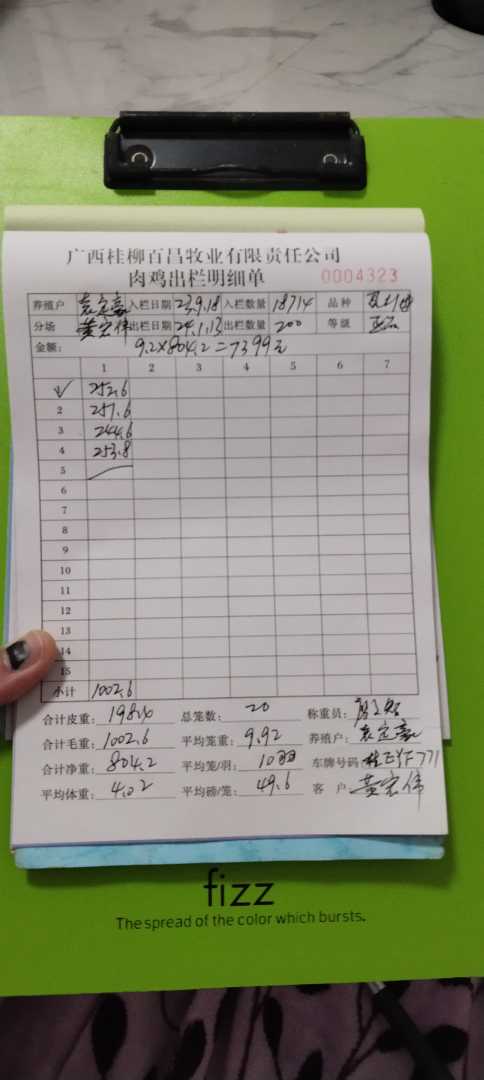 广西桂柳百昌牧业有限责任公司
肉鸡出栏明细单 0004323
养殖户 袁定豪 入栏日期 23.9.18 入栏数量 18714 品种
分场 黄宏伟 出栏日期 24.1.13 出栏数量 200 等级 正品
金额： 9.2×804.2=7399元
1 2 3 4 5 6 7
252.6
2 251.6
3 244.6
4 253.8
5
6
7
8
9
10
11
12
13
14
15
小计 1002.6
合计皮重： 198.4 总笼数： 20 称重员：
合计毛重： 1002.6 平均笼重： 9.92 养殖户： 袁定豪
合计净重： 804.2 平均笼/羽： 10羽 车牌号码 桂EYF771
平均体重： 4.02 平均磅/笼： 49.6 客 户： 黄宏伟
fizz
The spread of the color which bursts.